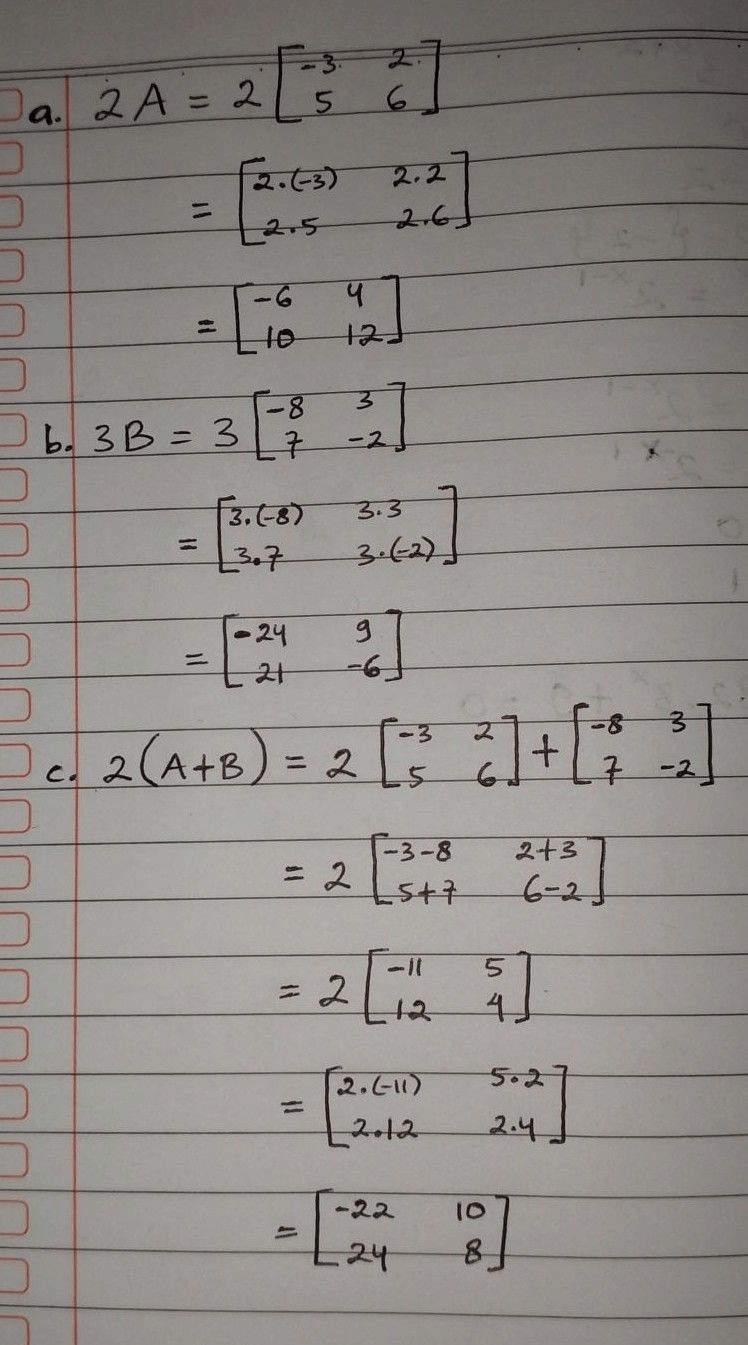 a. 2A = 2 [-3 2
5 6]
= [2.(-3) 2.2
2.5 2.6]
= [-6 4
10 12]
b. 3B = 3 [-8 3
7 -2]
= [3.(-8) 3.3
3.7 3.(-2)]
= [-24 9
21 -6]
c. 2(A+B) = 2 [-3 2
5 6] + [-8 3
7 -2]
= 2 [-3-8 2+3
5+7 6-2]
= 2 [-11 5
12 4]
= [2.(-11) 5.2
2.12 2.4]
= [-22 10
24 8]